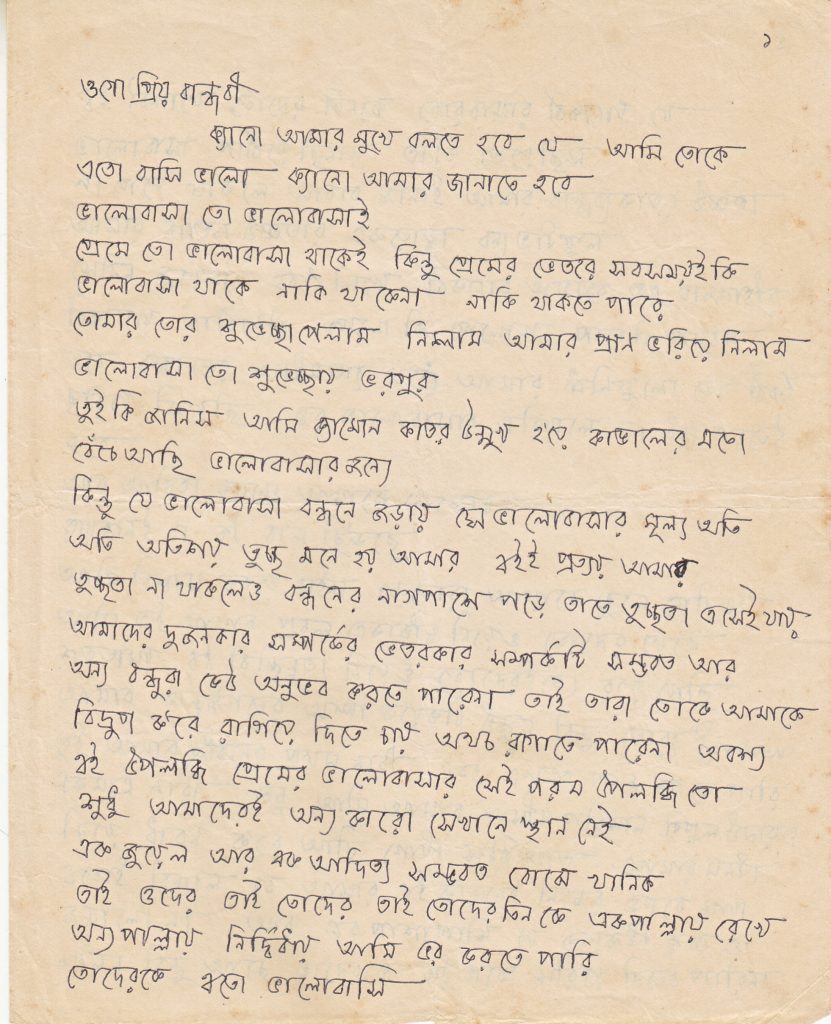 ১
ওগো প্রিয় বান্ধবী
ক্যানো আমার মুখে বলতে হবে যে আমি তোকে
এতো বাসি ভালো ক্যানো আমার জানাতে হবে
ভালোবাসা তো ভালোবাসাই
প্রেমে তো ভালোবাসা থাকেই কিন্তু প্রেমের ভেতরে সবসময়ই কি
ভালোবাসা থাকে নাকি থাকেনা নাকি থাকতে পারে
তোমার তোর শুভেচ্ছা পেলাম নিলাম আমার প্রান ভরিয়ে নিলাম
ভালোবাসা তো শুভেচ্ছায় ভরপুর
তুই কি জানিস আমি ক্যামোন কাতর উন্মুখ হ'য়ে কাঙালের মতো
বেঁচে আছি ভালোবাসার জন্যে
কিন্তু যে ভালোবাসা বন্ধনে জড়ায় সে ভালোবাসার মূল্য অতি
অতি অতিশয় তুচ্ছ মনে হয় আমার এইই প্রত্যয় আমার
তুচ্ছতা না থাকলেও বন্ধনের নাগপাশে পড়ে তাতে তুচ্ছতা এসেই যায়
আমাদের দুজনকার সম্পর্কের ভেতরকার সম্পর্কটি সম্ভবত আর
অন্য বন্ধুরা কেউ অনুভব করতে পারেনা তাই তারা তোকে আমাকে
বিদ্রুপ ক'রে রাগিয়ে দিতে চায় অথচ রাগাতে পারেনা অবশ্য
এই উপলব্ধি প্রেমের ভালোবাসার সেই পরম উপলব্ধি তো
শুধু আমাদেরই অন্য কারো সেখানে স্থান নেই
এক জুয়েল আর এক আদিত্য সম্ভবত বোঝে খানিক
তাই ওদের তাই তোদের তাই তোদের তিন কে একপাল্লায় রেখে
অন্যপাল্লায় নির্দ্বিধায় আমি ভর করতে পারি
তোদেরকে এতো ভালোবাসি